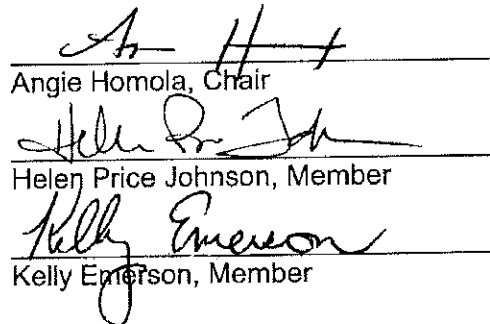 Angie Homola, Chair
Helen Pri Joh
Helen Price Johnson, Member
Kelly Emerson
Kelly Emerson, Member